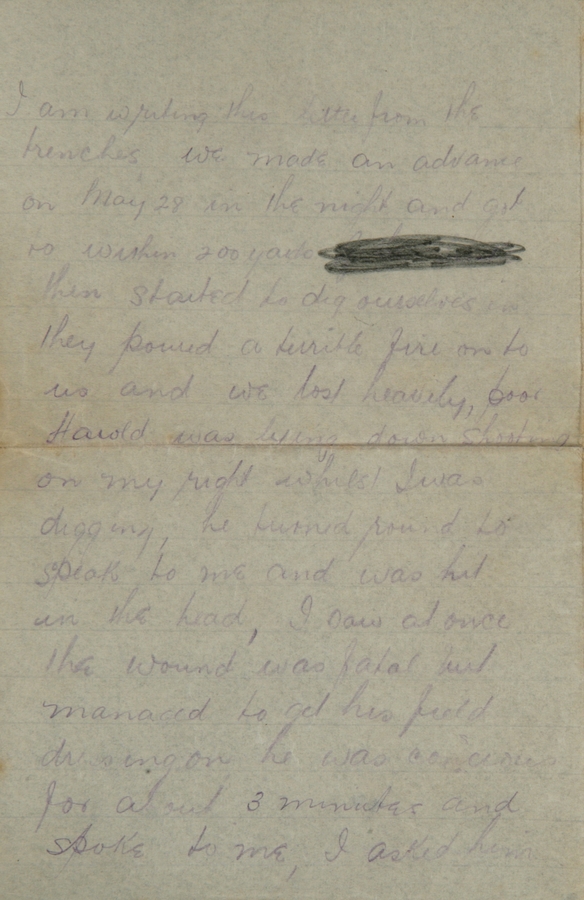 I am writing this letter from the
trenches we made an advance
on May 28 in the night and got
to within 200 yards
then started to dig ourselves in
they poured a terrible fire on to
us and we lost heavely, poor
Harold was lying down shooting
on my right whilst I was
digging, he turned round to
speak to me and was hit
in the head, I saw at once
the wound was fatal but
managed to get his field
dressing on he was concious
for about 3 minutes and
spoke to me, I asked him